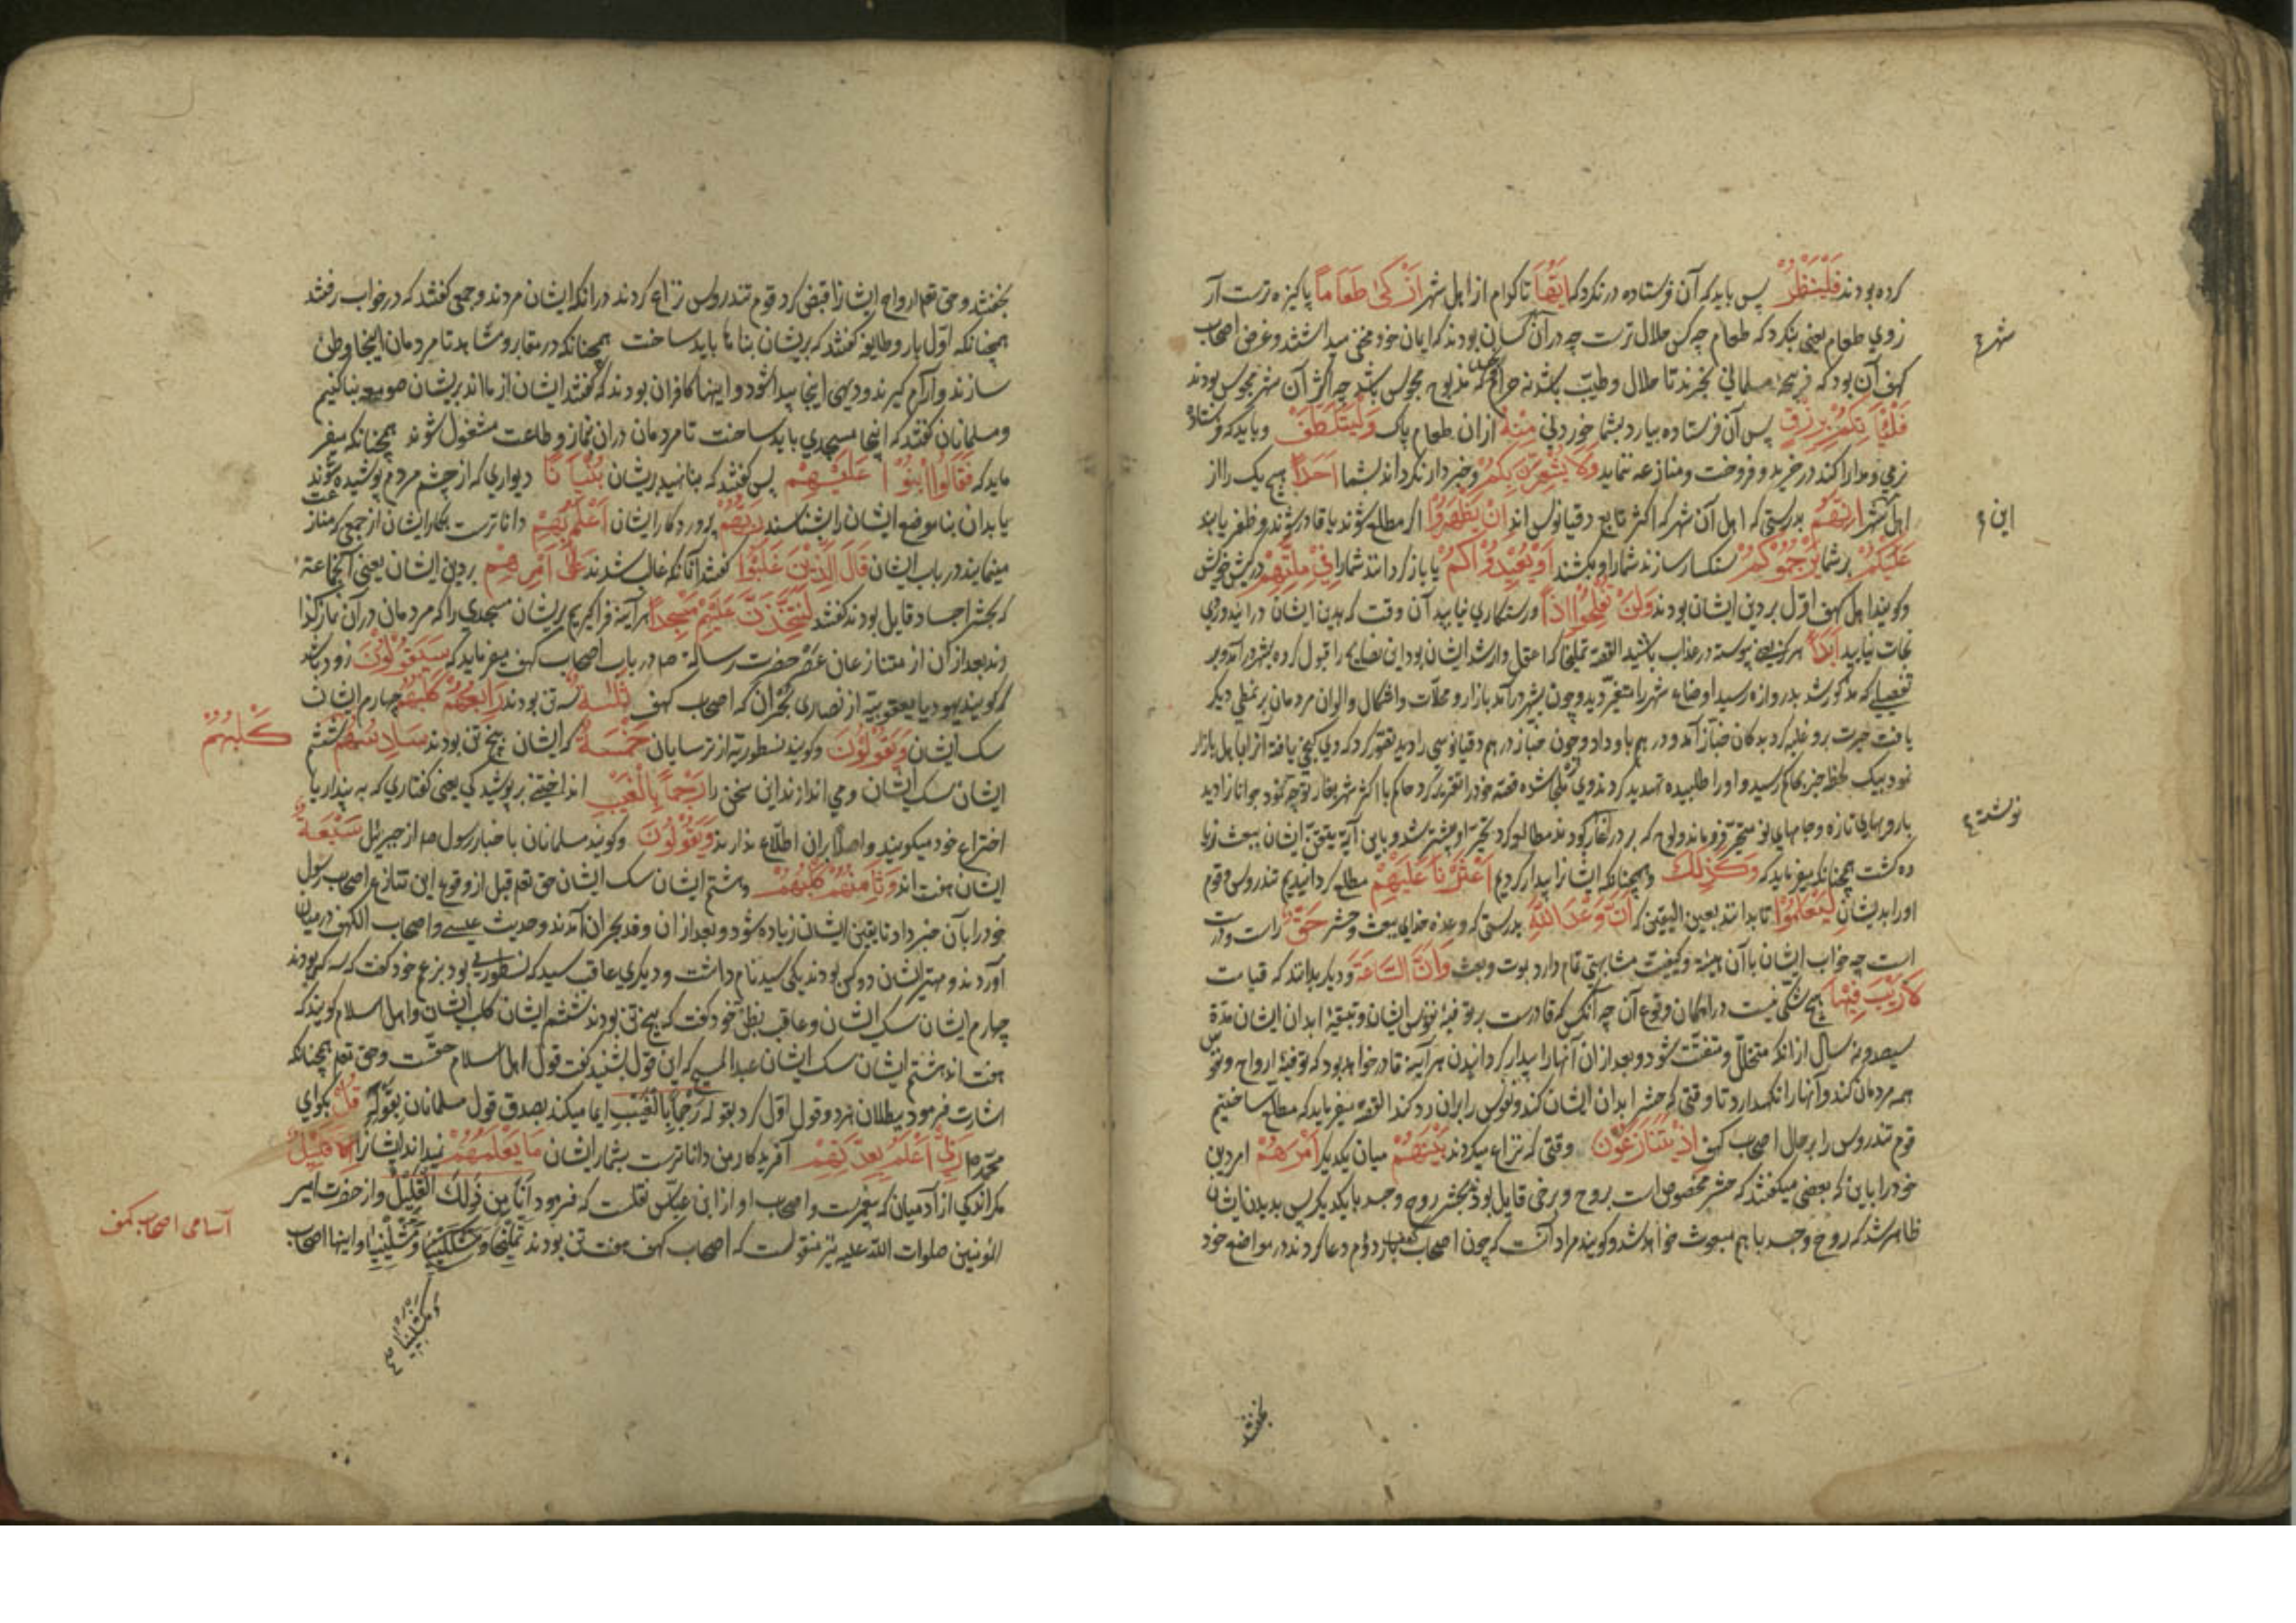 کرده بودند فَلْيَنْظُرْ پس باید که آن فرستاده در نگرد که اَيُّهَا تا کدام از اهل شهر اَزْكٰى طَعَامًا پاکیزه ترست از
روی طعام یعنی بنگرد که طعام چه کس حلال ترست چه در آن کسان بودند که ایمان خود مخفی میداشتند و غرض اصحاب
کهف آن بود که ذبیحه مسلمانی بخرند تا حلال و طیب باشد نه حرام که مذبوح مجوس باشد چه اکثر آن شهر مجوس بودند
فَلْيَأْتِكُمْ بِرِزْقٍ پس آن فرستاده بیارد بشما خوردنی مِنْهُ ازان طعام پاک وَلْيَتَلَطَّفْ و باید که فرستاده
نرمی و مدارا کند در خرید و فروخت و منازعه ننماید وَلَا يُشْعِرَنَّ بِكُمْ و خبردار نگرداند بشما اَحَدًا هیچ یک را از
اهل شهر اِنَّهُمْ بدرستی که اهل آن شهر که اکثر تابع دقیانوس اند اِنْ يَظْهَرُوْا اگر مطلع شوند یا قادر شوند و ظفر یابند
عَلَيْكُمْ بر شما يَرْجُمُوْكُمْ سنکسار سازند شما را و بکشند اَوْ يُعِيْدُوْكُمْ یا باز گردانند شما را فِيْ مِلَّتِهِمْ در کیش خویش
و گویند اهل کهف اول بر دین ایشان بودند وَلَنْ تُفْلِحُوْا اِذًا و رستکاری نیابید آن وقت که بدین ایشان درایید و روی
نجات نیابید اَبَدًا هرکز یعنی پیوسته در عذاب باشید القصه تملیخا که اعقل و ارشد ایشان بود این نصایح را قبول کرده بشهر درآمد و بر
تفصیلی که مذکور شد بدروازه رسید اوضاع شهر را متغیر دید و چون بشهر درآمد بازار و محلات و اشکال و الوان مردمان بر نمطی دیکر
یافت حیرت برو غلبه کرد بدکان خباز آمد و درهم باو داد و چون خباز درهم دقیانوسی را دید تصور کرد که وی کنجی یافته انرا باهل بازار
نمود بیک لحظه خبر بحاکم رسید و او را طلبیده تهدید کردند وی ملجا شده قصه خود را تقریر کرد حاکم با اکثر شهر بغار توجه نمود جوانان را دید
با رویهای تازه و جامهای نو متحیر فروماند و لوح که بر در غار بود مطالعه کرد تحیر او بیشتر شد و باین آیة یقین ایشان ببعث زیا
ده کشت همچنانکه میفرماید که وَكَذٰلِكَ و همچنانکه ایشان را بیدار کردیم اَعْثَرْنَا عَلَيْهِمْ مطلع کردانیدیم تندروس و قوم
او را بدیشان لِيَعْلَمُوْا تا بدانند بعین الیقین که اَنَّ وَعْدَ اللّٰهِ بدرستی که وعده خدای ببعث و حشر حَقٌّ راست و درست
است چه خواب ایشان با آن هیئة و کیفیت مشابهتی تمام دارد بموت و بعث وَاَنَّ السَّاعَةَ و دیکر بدانند که قیامت
لَا رَيْبَ فِيْهَا هیچ شکی نیست در امکان وقوع آن چه آنکس که قادرست بر توفیهٔ نفوس ایشان و تبقیهٔ ابدان ایشان مدة
سیصد و نه سال از آنکه متحلل و متفتت شود و بعد از آن آنها را بیدار کردانیدن هر آینه قادر خواهد بود که توفیهٔ ارواح و نفوس
همه مردمان کند و آنها را نکهدارد تا وقتی که حشر ابدان ایشان کند و نفوس را بران رد کند القصه میفرماید که مطلع ساختیم
قوم تندروس را بر حال اصحاب کهف اِذْ يَتَنَازَعُوْنَ وقتی که نزاع میکردند بَيْنَهُمْ میان یکدیکر اَمْرَهُمْ امر دین
خود را باین که بعضی میکفتند که حشر مخصوص است بروح و برخی قایل بودند بحشر روح و جسد با یکدیکر پس بدیدن ایشان
ظاهر شد که روح و جسد با هم مبعوث خواهد شد و گویند مراد آنست که چون اصحاب کهف بار دوم دعا کردند در مواضع خود
شهر
این
نوشته
بخفتند
بخفتند و حق تع ارواح ایشان را قبض کرد قوم تندروس نزاع کردند در آنکه ایشان مردند و جمعی کفتند که در خواب رفتند
همچنانکه اول بار و طایفه کفتند که بریشان بناها باید ساخت همچنانکه در مقابر و مشاهد تا مردمان اینجا وطن
سازند و آرام کیرند و دیهی اینجا پیدا شود و اینها کافران بودند که کفتند ایشان از مااند بریشان صومعه بنا کنیم
و مسلمانان کفتند که اینجا مسجدی باید ساخت تا مردمان دران نماز و طاعت مشغول شوند همچنانکه میفر
ماید که فَقَالُوا ابْنُوْا عَلَيْهِمْ پس کفتند که بنا نهید بریشان بُنْيَانًا دیواری که از چشم مردم پوشیده شوند
یا بدان بنا موضع ایشان را بشناسند رَبُّهُمْ پروردکار ایشان اَعْلَمُ بِهِمْ داناترست بکار ایشان از جمعی که مناز
مینمایند در باب ایشان قَالَ الَّذِيْنَ غَلَبُوْا کفتند آنانکه غالب شدند عَلٰٓى اَمْرِهِمْ بر دین ایشان یعنی آنجماعة
که بحشر اجساد قایل بودند کفتند لَنَتَّخِذَنَّ عَلَيْهِمْ مَسْجِدًا هر آینه فراکیریم بریشان مسجدی را که مردمان در آن نماز کذا
رند بعد از آن از متنازعان عصر حضرت رسالة صلعم در باب اصحاب کهف میفرماید که سَيَقُوْلُوْنَ زود باشد
که گویند یهود یا یعقوبیه از نصاری نجران که اصحاب کهف ثَلٰثَةٌ سه تن بودند رَابِعُهُمْ كَلْبُهُمْ چهارم ایشان
سک ایشان وَيَقُوْلُوْنَ و گویند نسطوریه از ترسایان خَمْسَةٌ که ایشان پنج تن بودند سَادِسُهُمْ ششم
ایشان سک ایشان و می اندازند این سخن را رَجْمًا بِالْغَيْبِ انداختنی بر پوشیدکی یعنی کفتاری که به پندار یا
اختراع خود میکویند و اصلا بران اطلاع ندارند وَيَقُوْلُوْنَ و گویند مسلمانان باخبار رسول صلعم از جبرئیل سَبْعَةٌ
ایشان هفت اند وَثَامِنُهُمْ كَلْبُهُمْ و هشتم ایشان سک ایشان حق تع قبل از وقوع این تنازع اصحاب رسول
خود را بآن خبر داد تا یقین ایشان زیاده شود و بعد از آن وفد نجران آمدند و حدیث عیسی و اصحاب الکهف در میان
آوردند و مهتر ایشان دو کس بودند یکی سید نام داشت و دیکری عاقب سید که نسطوریی بود بزعم خود کفت که سه کس بودند
چهارم ایشان سک ایشان و عاقب بظن خود کفت که پنج تن بودند ششم ایشان کلب ایشان و اهل اسلام گویند که
هفت اند هشتم ایشان سک ایشان عبد المسیح که این قول بشنید کفت قول اهل اسلام حقست و حق تع همچنانکه
اشارت فرمود ببطلان هر دو قول اول کرد بقوله رَجْمًا بِالْغَيْبِ ایما میکند بصدق قول مسلمانان بقوله قُلْ بکوای
محمد صلعم رَبِّيْٓ اَعْلَمُ بِعِدَّتِهِمْ آفریدکار من داناترست بشمار ایشان مَا يَعْلَمُهُمْ نمیداند ایشان را اِلَّا قَلِيْلٌ
مکر اندکی از آدمیان که پیغمبرست و اصحاب او از ابن عباس نقلست که فرمود اَنَا مِنْ ذٰلِكَ الْقَلِيْلِ و از حضرت امیر
المؤمنین صلوات الله علیه نیز منقولست که اصحاب کهف هفت تن بودند تملیخا و مکسلینا و مشلینیا و اینها اصحاب
كَلْبُهُمْ
آسامی اصحاب کهف